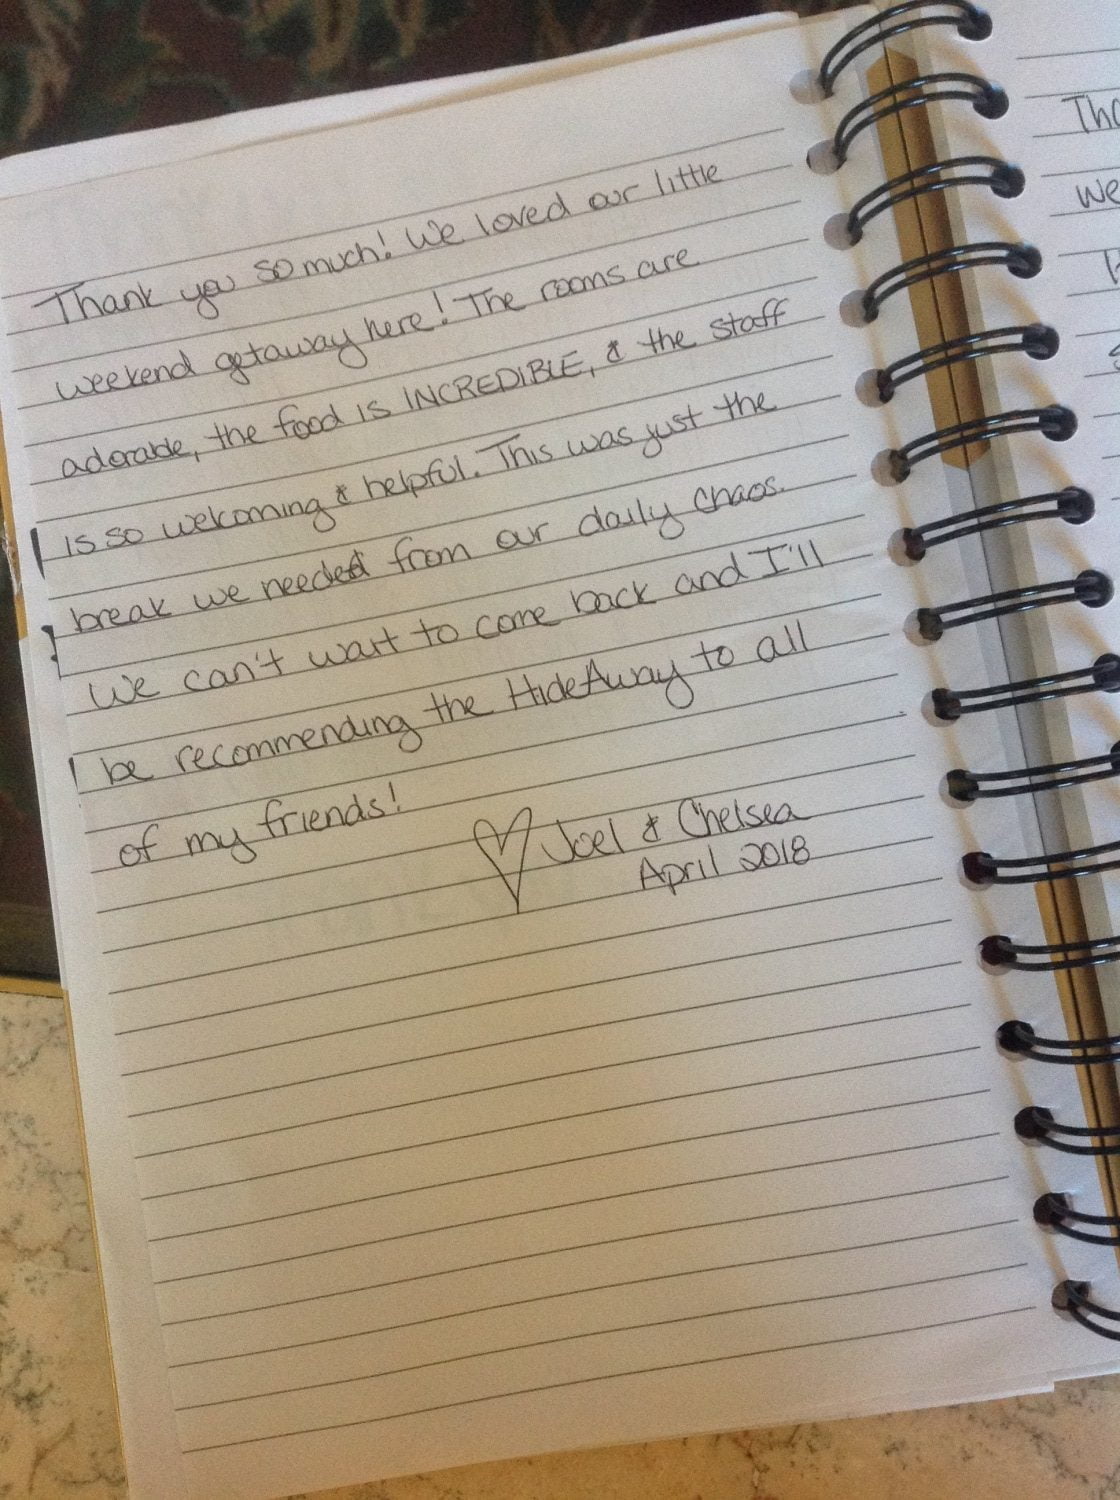 Thank you so much! We loved our little
weekend getaway here! The rooms are
adorable, the food is INCREDIBLE, & the staff
is so welcoming & helpful. This was just the
break we needed from our daily chaos.
We can't wait to come back and I'll
be recommending the HideAway to all
of my friends!
♡ Joel & Chelsea
April 2018
We